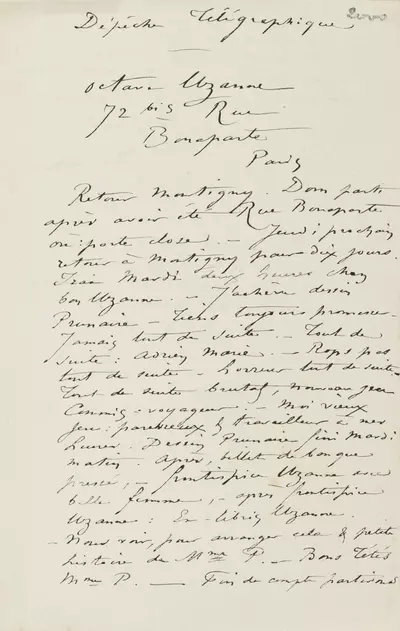 Dépêche Télégraphique
2000
octave Uzanne
72 bis Rue
Bonaparte
Paris
Retour Montigny. Dom parti
après avoir été Rue Bonaparte
où: porte close. — Jeudi prochain
retour à Montigny pour dix jours.
Irai Mardi deux heures chez
bon Uzanne. — J'achève dessin
Prunaire — tiens toujours promesse.
Jamais tout de suite. — Tout de
suite: Adrien Marie. — Rops pas
tout de suite — horreur tout de suite
Tout de suite brutal, nouveau jeu
Commis-voyageur. — Moi vieux
jeu: paresseux & travailleur à mes
heures. Dessin Prunaire fini Mardi
matin. Après, billet de banque
pressé, — frontispice Uzanne avec
belle femme, — après frontispice
Uzanne: Ex-libris Uzanne.
— Nous voir, pour arranger cela & petite
histoire de Mme P. — Bons Tétés
Mme P. — Fin de compte